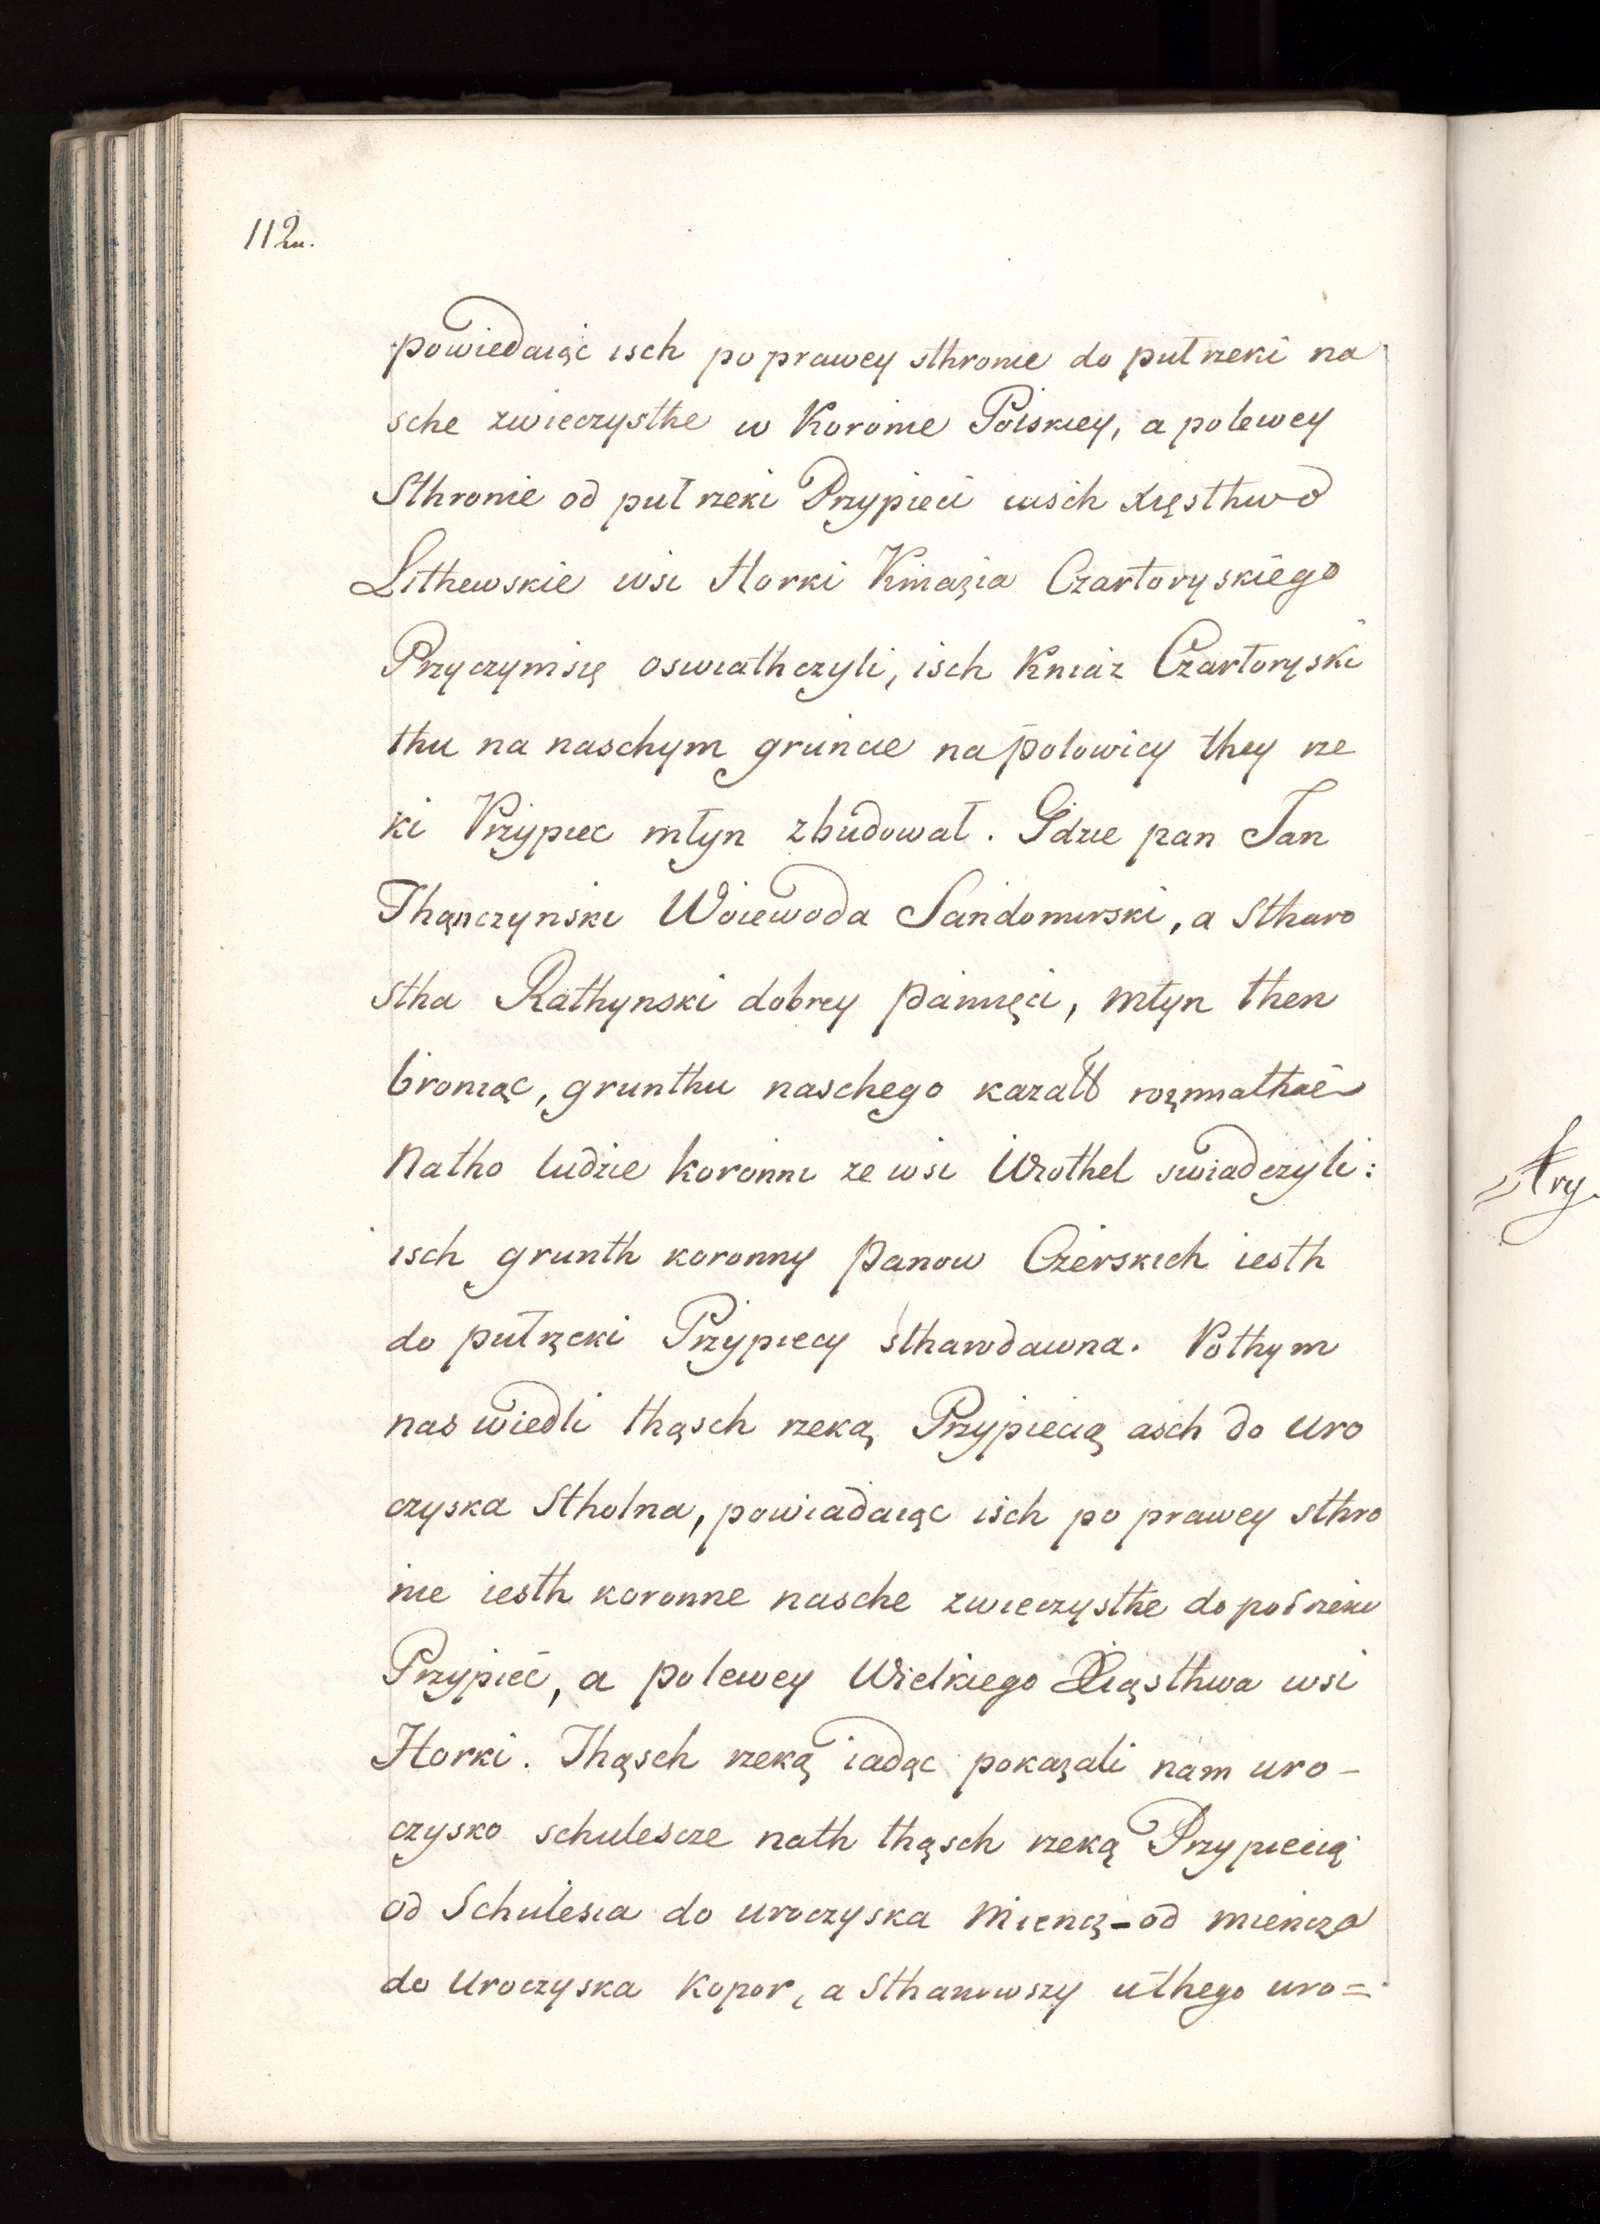 112.
powiedaiąc isch po prawey sthronie do puł rzeki na
sche zwieczysthe w Koronie Polskiey, a polewey
Sthronie od puł rzeki Przypieci iusch xięsthwo
Lithewskie wsi Horki Kniazia Czartoryskiego
Przyczymsię oswiathczyli, isch Kniaz Czartoryski
thu na naschym gruncie napolowicy they rze
ki Przypiec młyn zbudował. Gdzie pan Jan
Thąnczynski Woiewoda Sandomirski, a Stharo
stha Rathynski dobrey pamięci, młyn then
broniąc, grunthu naschego kazał rozmiathać
Natho ludzie koronni ze wsi Wrothel swiadczyli:
isch grunth koronny Panow Czerskich iesth
do pułrzeki Przypiecy sthawdawna. Pothym
nas wiedli thąsch rzeką Przypiecią asch do uro
czyska Stholna, powiadaiąc isch po prawey sthro
nie iesth koronne nasche zwieczysthe do poł rzeki
Przypieć, a polewey Wielkiego Xiąsthwa wsi
Horki. Thąsch rzeką iadąc pokazali nam uro-
czysko schulescze nath thąsch rzeką Przypiecią
od Schulesia do uroczyska Miencz-od miencza
do Uroczyska Kopor, a Sthanowszy uthego uro=
Ary.